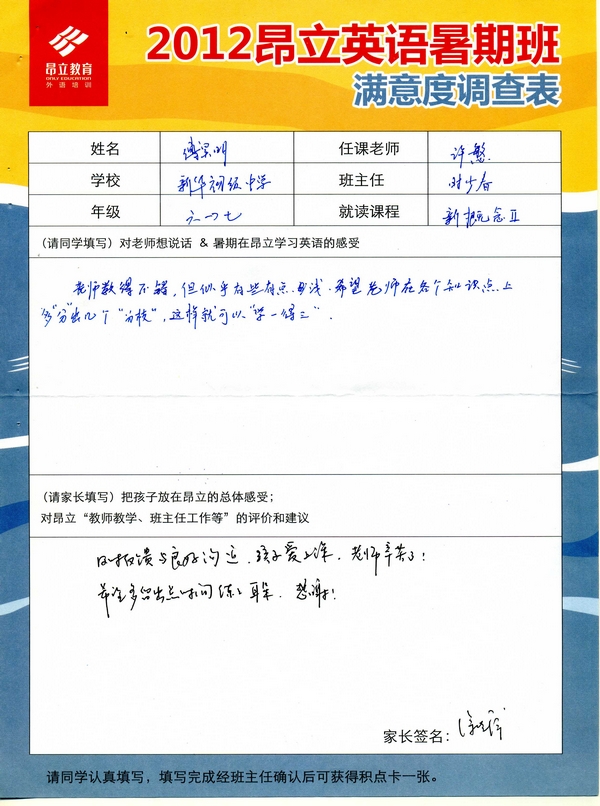 昂立教育
ONLY EDUCATION
外语培训
2012昂立英语暑期班
满意度调查表
姓名 傅 明 任课老师 许慜
学校 新华初级中学 班主任 时少春
年级 六一〇七 就读课程 新概念II
(请同学填写) 对老师想说话 & 暑期在昂立学习英语的感受
老师教得不错,但似乎有些有点 浅.希望老师在各个知识点上
多“分”出几个“分枝”,这样就可以“学一得三”.
(请家长填写) 把孩子放在昂立的总体感受;
对昂立“教师教学、班主任工作等”的评价和建议
反馈与良好沟通,孩子爱上课,老师辛苦了!
希望多留出点时间练 耳朵,想 谢!
家长签名:
请同学认真填写,填写完成经班主任确认后可获得积点卡一张。